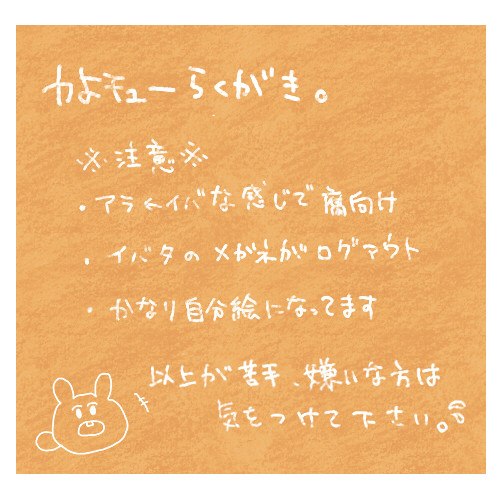 かよチューらくがき。
※注意※
・アラ←イバな感じで腐向け
・イバタのメガネがログアウト
・かなり自分絵になってます
以上が苦手、嫌いな方は
気をつけて下さい。